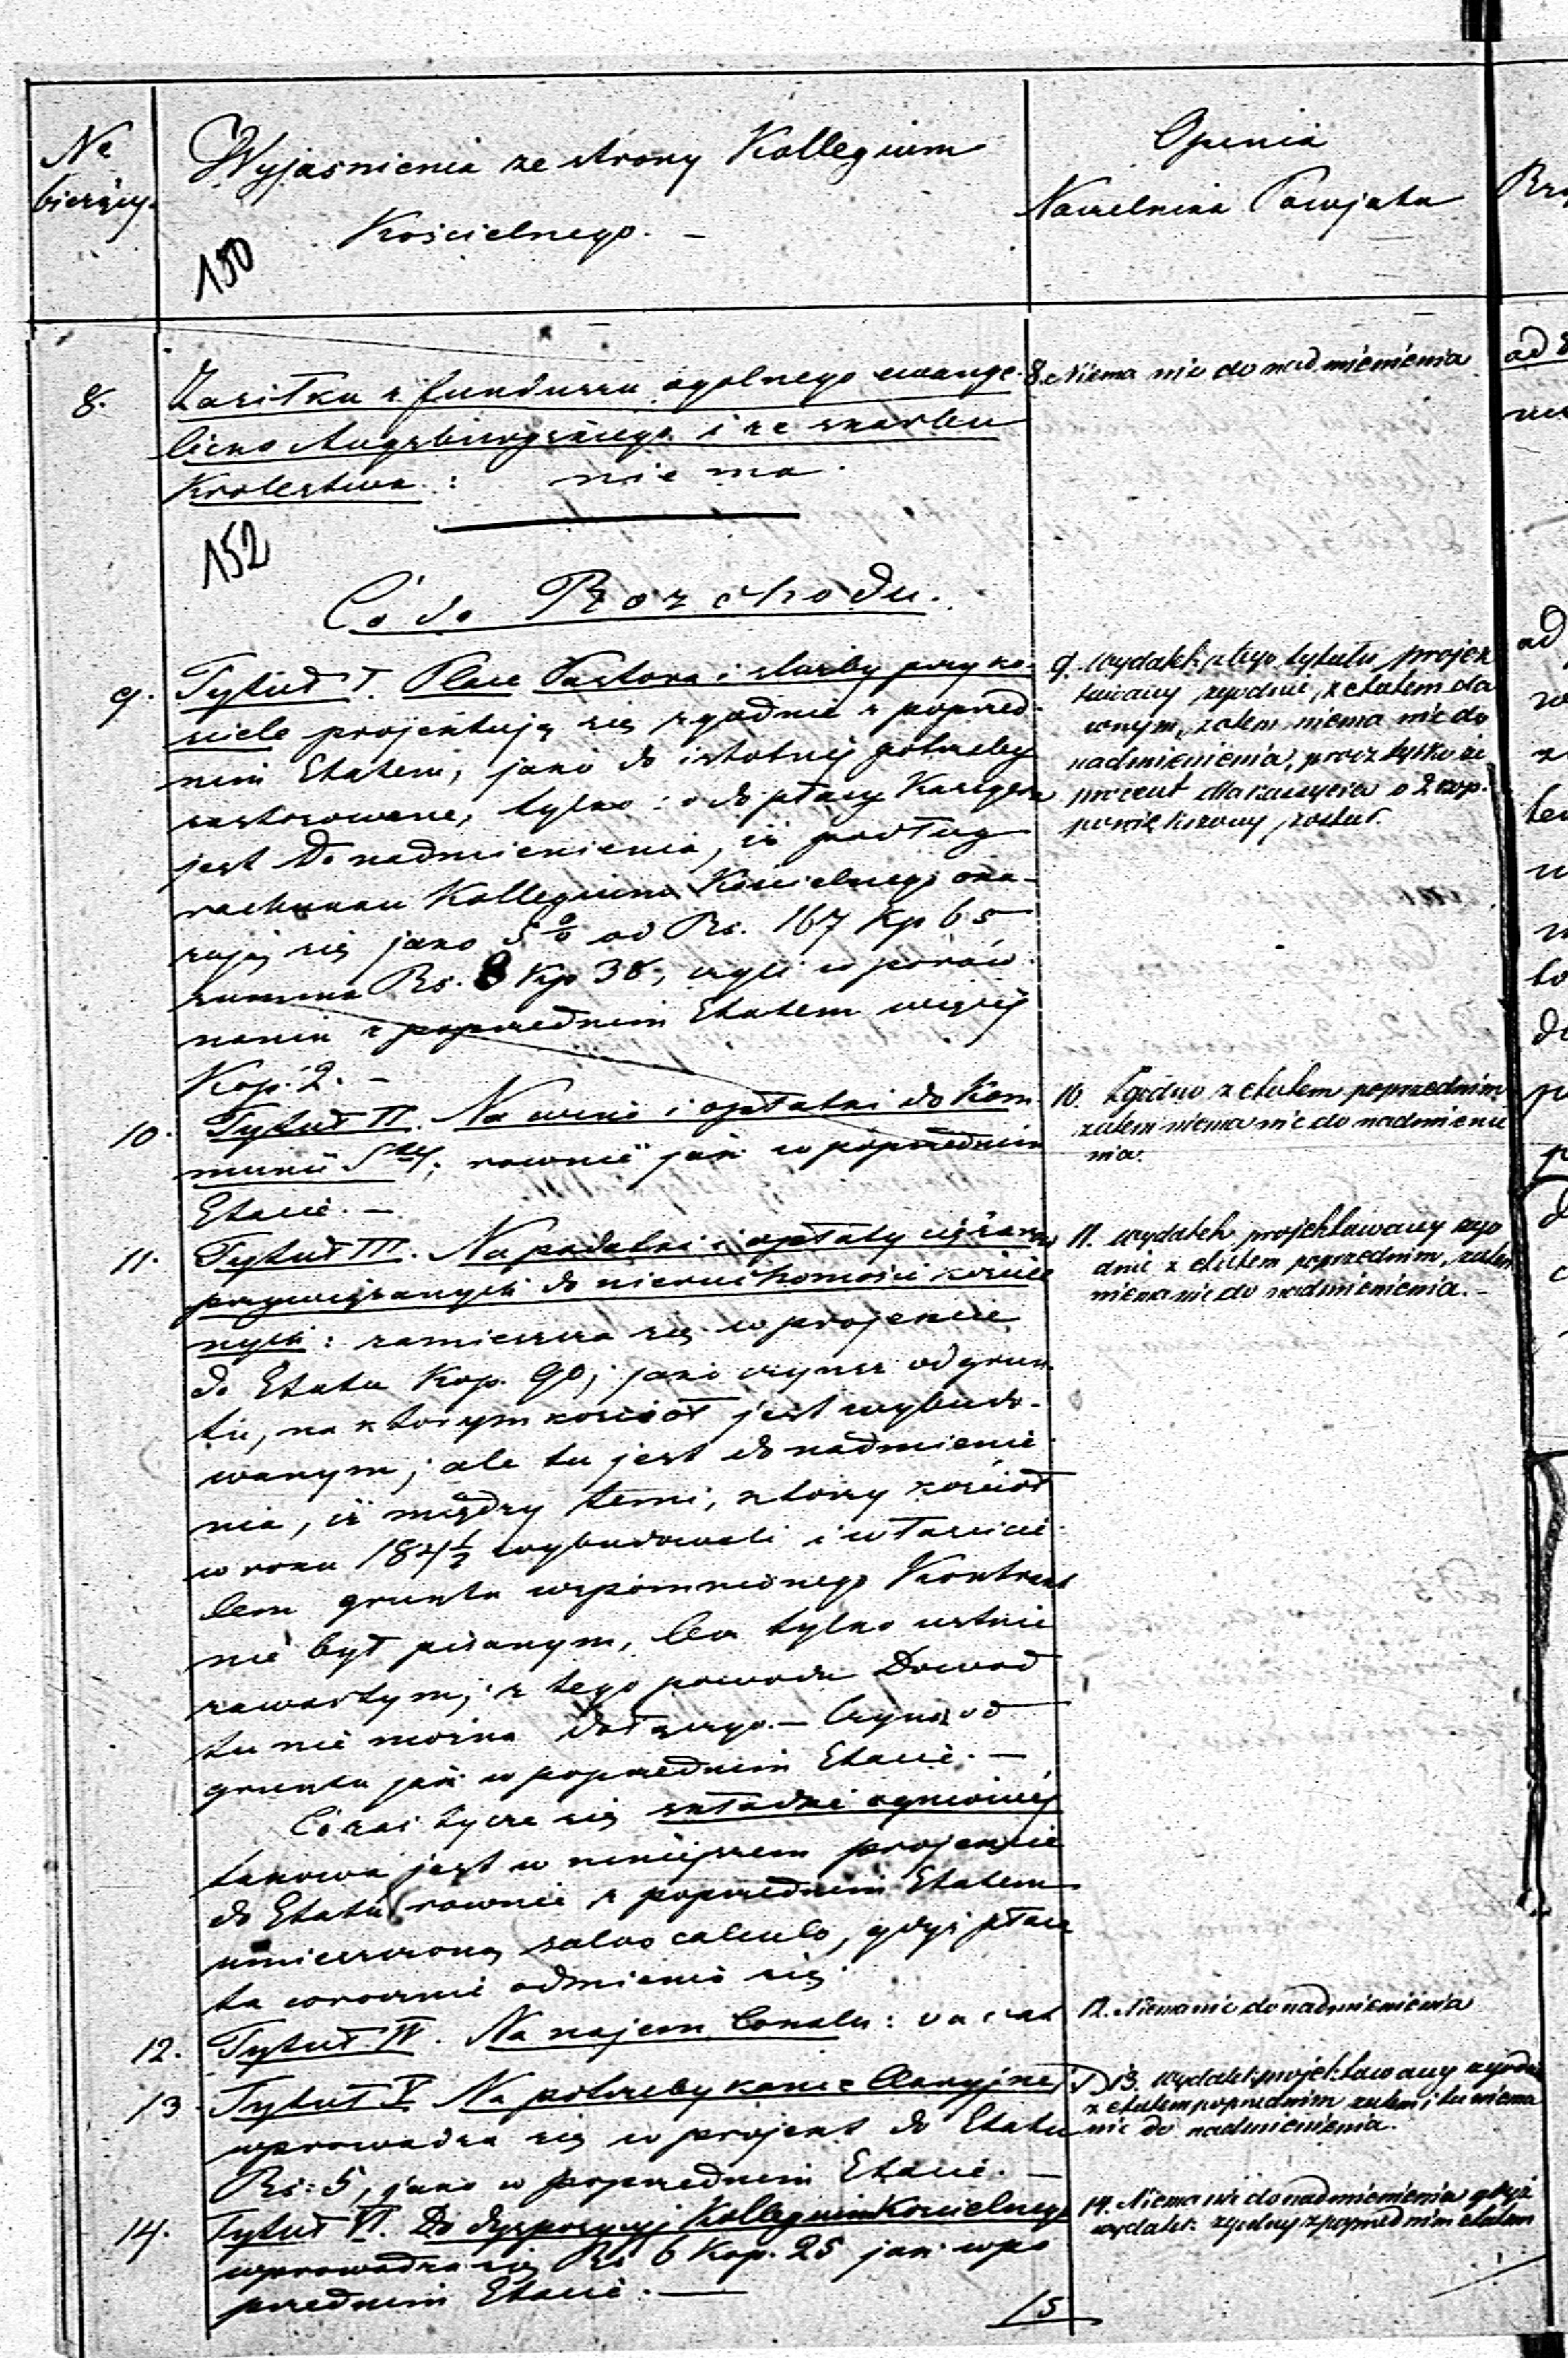 No
bieżący.
Wyjasnienia ze strony Kollegium
Kościelnego. —
150
Opinia
Naczelnika Powjatu
8.
Zasiłku z funduszu ogolnego ewange-
licko Augsburgskiego i ze skarbu
Krolestwa: nie ma.
8. Niema nic do nadmienienia
152
Co do Rozchodu.
9.
Tytuł I. Płace Pastora i służby przy ko-
ściele projektują się zgodnie z poprzed-
nim Etatem, jako do istotnéj potrzeby
zastosowane, tylko: do płacy Kassyera
jest do nadmienienia, iż podług
rachunku Kollegium Kościelnego oka-
zują się jako 5% od Rs. 167 Kp 65
summa Rs. 8 Kp 38, czyli w porów-
naniu z poprzednim Etatem więcéj
Kop. 2. —
9. wydatek z tego tytułu projek
towany zgodnie z etatem da
wnym, zatem niema nic do
nadmienienia, procz tylko że
procent dla kassyera o 2 kop.
powiększony został.
10.
Tytuł II. Na wino i opłatki do Kom-
munii Stéj; rownie jak w poprzednim
Etacie. —
10. Zgodno z etatem poprzednim
zatem niema nic do nadmienie
nia.
11.
Tytuł III. Na podatki i opłaty ciężarow
przywiązanych do nieruchomości koście
nych: zamieszcza się w projekcie
do Etatu Kop. 90; jako czynsz od grun
tu, na ktorym kosciół jest wybudo-
wanym; ale tu jest do nadmienie
nia, iż między temi, ktorzy kościół
w roku 184½ wybudowali i właścicie-
lem gruntu wspomnionego Kontrakt
nie był pisanym, lecz tylko ustnie
zawartym; z tego powodu Dowod
tu nie można dołączyc. — Czynsz od
gruntu jak w poprzednim Etacie. —
11. wydatek projektowany zgo
dnie z etatem poprzednim, zatem
niema nic do nadmienienia. —
Co zaś tycze się składki ogniowéj
takowa jest w niniejszem projekcie
do Etatu rownie z poprzednim Etatem
umieszczoną salvo calculo, gdyż płaca
ta corocznie odmienia się.
12.
Tytuł IV. Na najem Lokalu: vacat
12. Niema nic do nadmienienia
13.
Tytuł V. Na potrzeby kancellaryjne
wprowadza się w projekt do Etatu
Rs: 5, jako w poprzednim Etacie. —
13. wydatek projektowany zgodnie
z etatem poprzednim zatem i tu niema
nic do nadmienienia.
14.
Tytuł VI. Do dyspozycyj Kollegium Kościelnego
wprowadza się Rs 6 Kop. 25 jak w po
przednim Etacie. —
14. Niema nic do nadmienienia gdyż
wydatek zgodny z poprzednim etatem
15